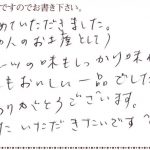 ですのでお書き下さい。
めていただきました。
の人のお土産として)
ーツの味もしっかり味わ
もおいしい一品でした
ありがとうございます。
た いただきたいです